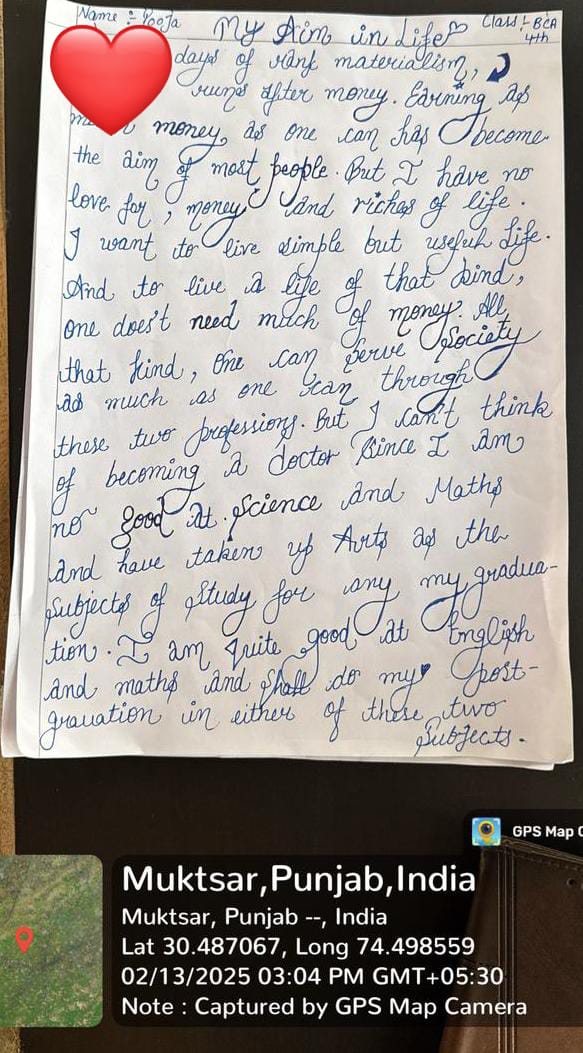 Name :- Pooja
My Aim in Life
Class :- BCA
4th
days of rank materialism,
runs after money. Earning as
money, as one can has become
the aim of most people. But I have no
love for, money and riches of life.
I want to live simple but useful life.
And to live a life of that kind,
one does't need much of money. All
that kind, one can serve Society
as much as one can through
these two professions. But I can't think
of becoming a doctor since I am
no good at science and Maths
and have taken up Arts as the
subjects of study for any my gradua-
tion. I am quite good at English
and maths and shall do my post-
grauation in either of these two
Subjects.
GPS Map C
Muktsar,Punjab,India
Muktsar, Punjab --, India
Lat 30.487067, Long 74.498559
02/13/2025 03:04 PM GMT+05:30
Note : Captured by GPS Map Camera